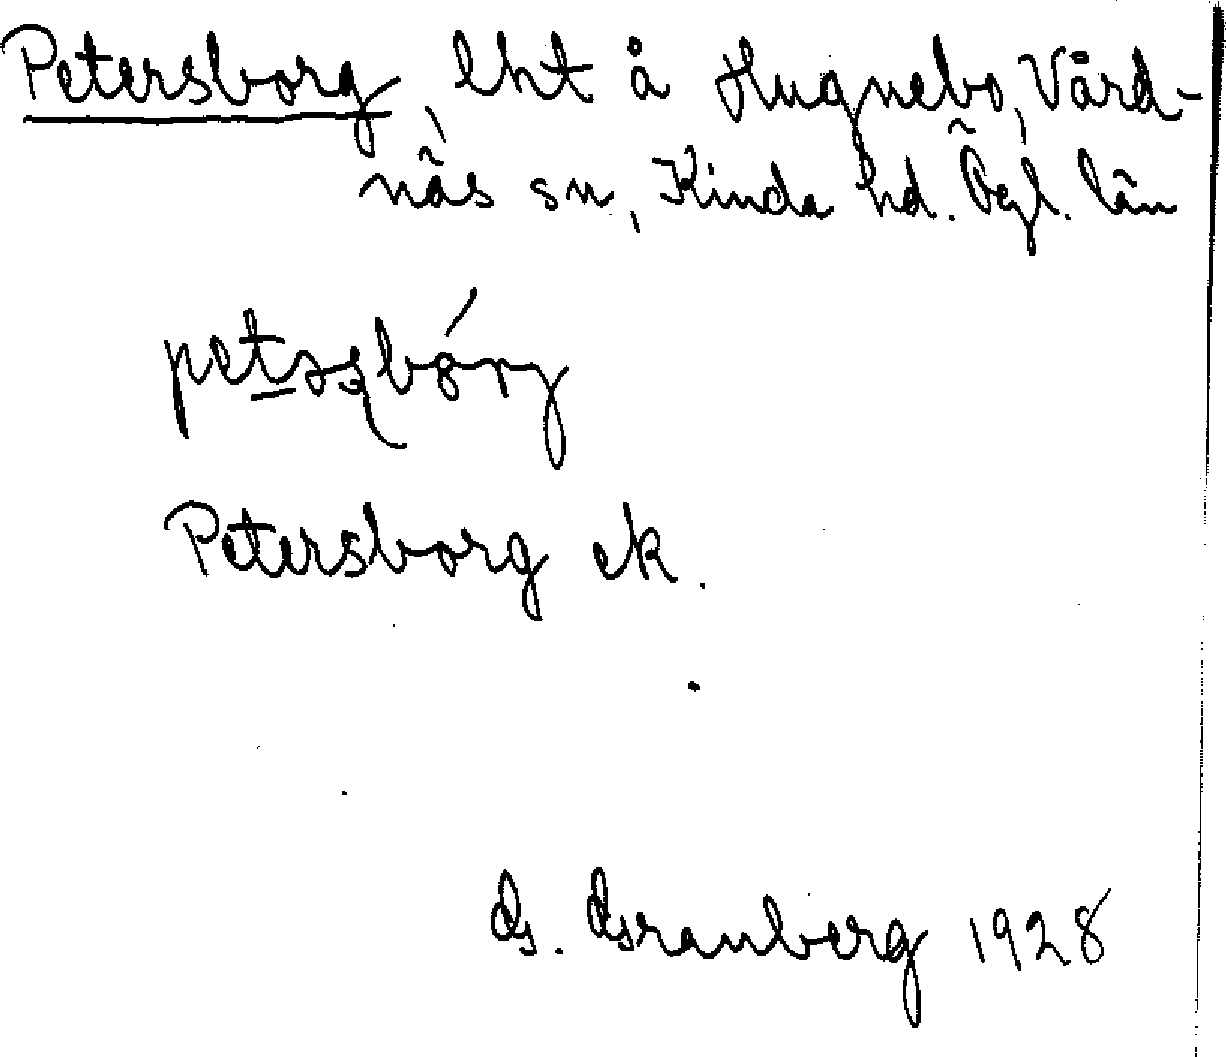 Petersborg, lht å Hugnebo, Vård-
näs sn, Kinda hd. Ögl. län
Petersborg ek.
G. Granberg 1928